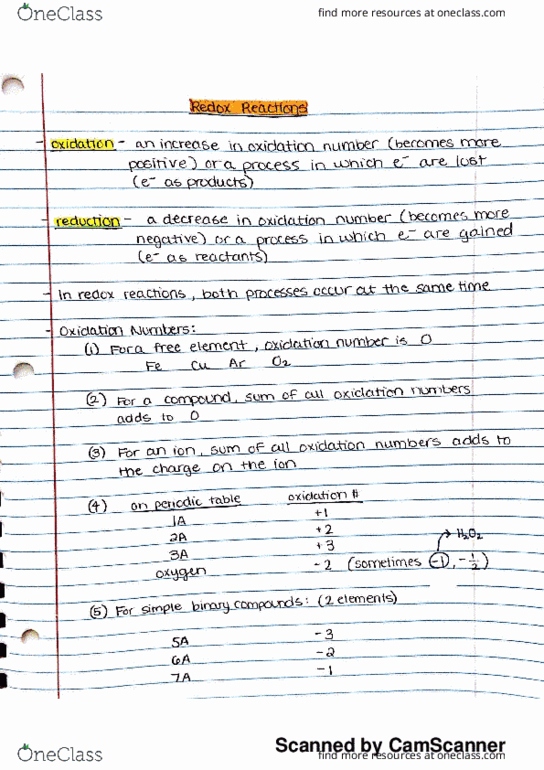 OneClass
find more resources at oneclass.com
Redox Reactions
- oxidation - an increase in oxidation number (becomes more
positive) or a process in which e⁻ are lost
(e⁻ as products)
- reduction - a decrease in oxidation number (becomes more
negative) or a process in which e⁻ are gained
(e⁻ as reactants)
- In redox reactions, both processes occur at the same time
- Oxidation Numbers:
(1) For a free element, oxidation number is 0
Fe Cu Ar O₂
(2) For a compound, sum of all oxidation numbers
adds to 0
(3) For an ion, sum of all oxidation numbers adds to
the charge on the ion
(4) on periodic table oxidation #
1A +1
2A +2
3A +3 → H₂O₂
oxygen -2 (sometimes -1, -1/2)
(5) For simple binary compounds: (2 elements)
5A -3
6A -2
7A -1
Scanned by CamScanner
OneClass
find more resources at oneclass.com